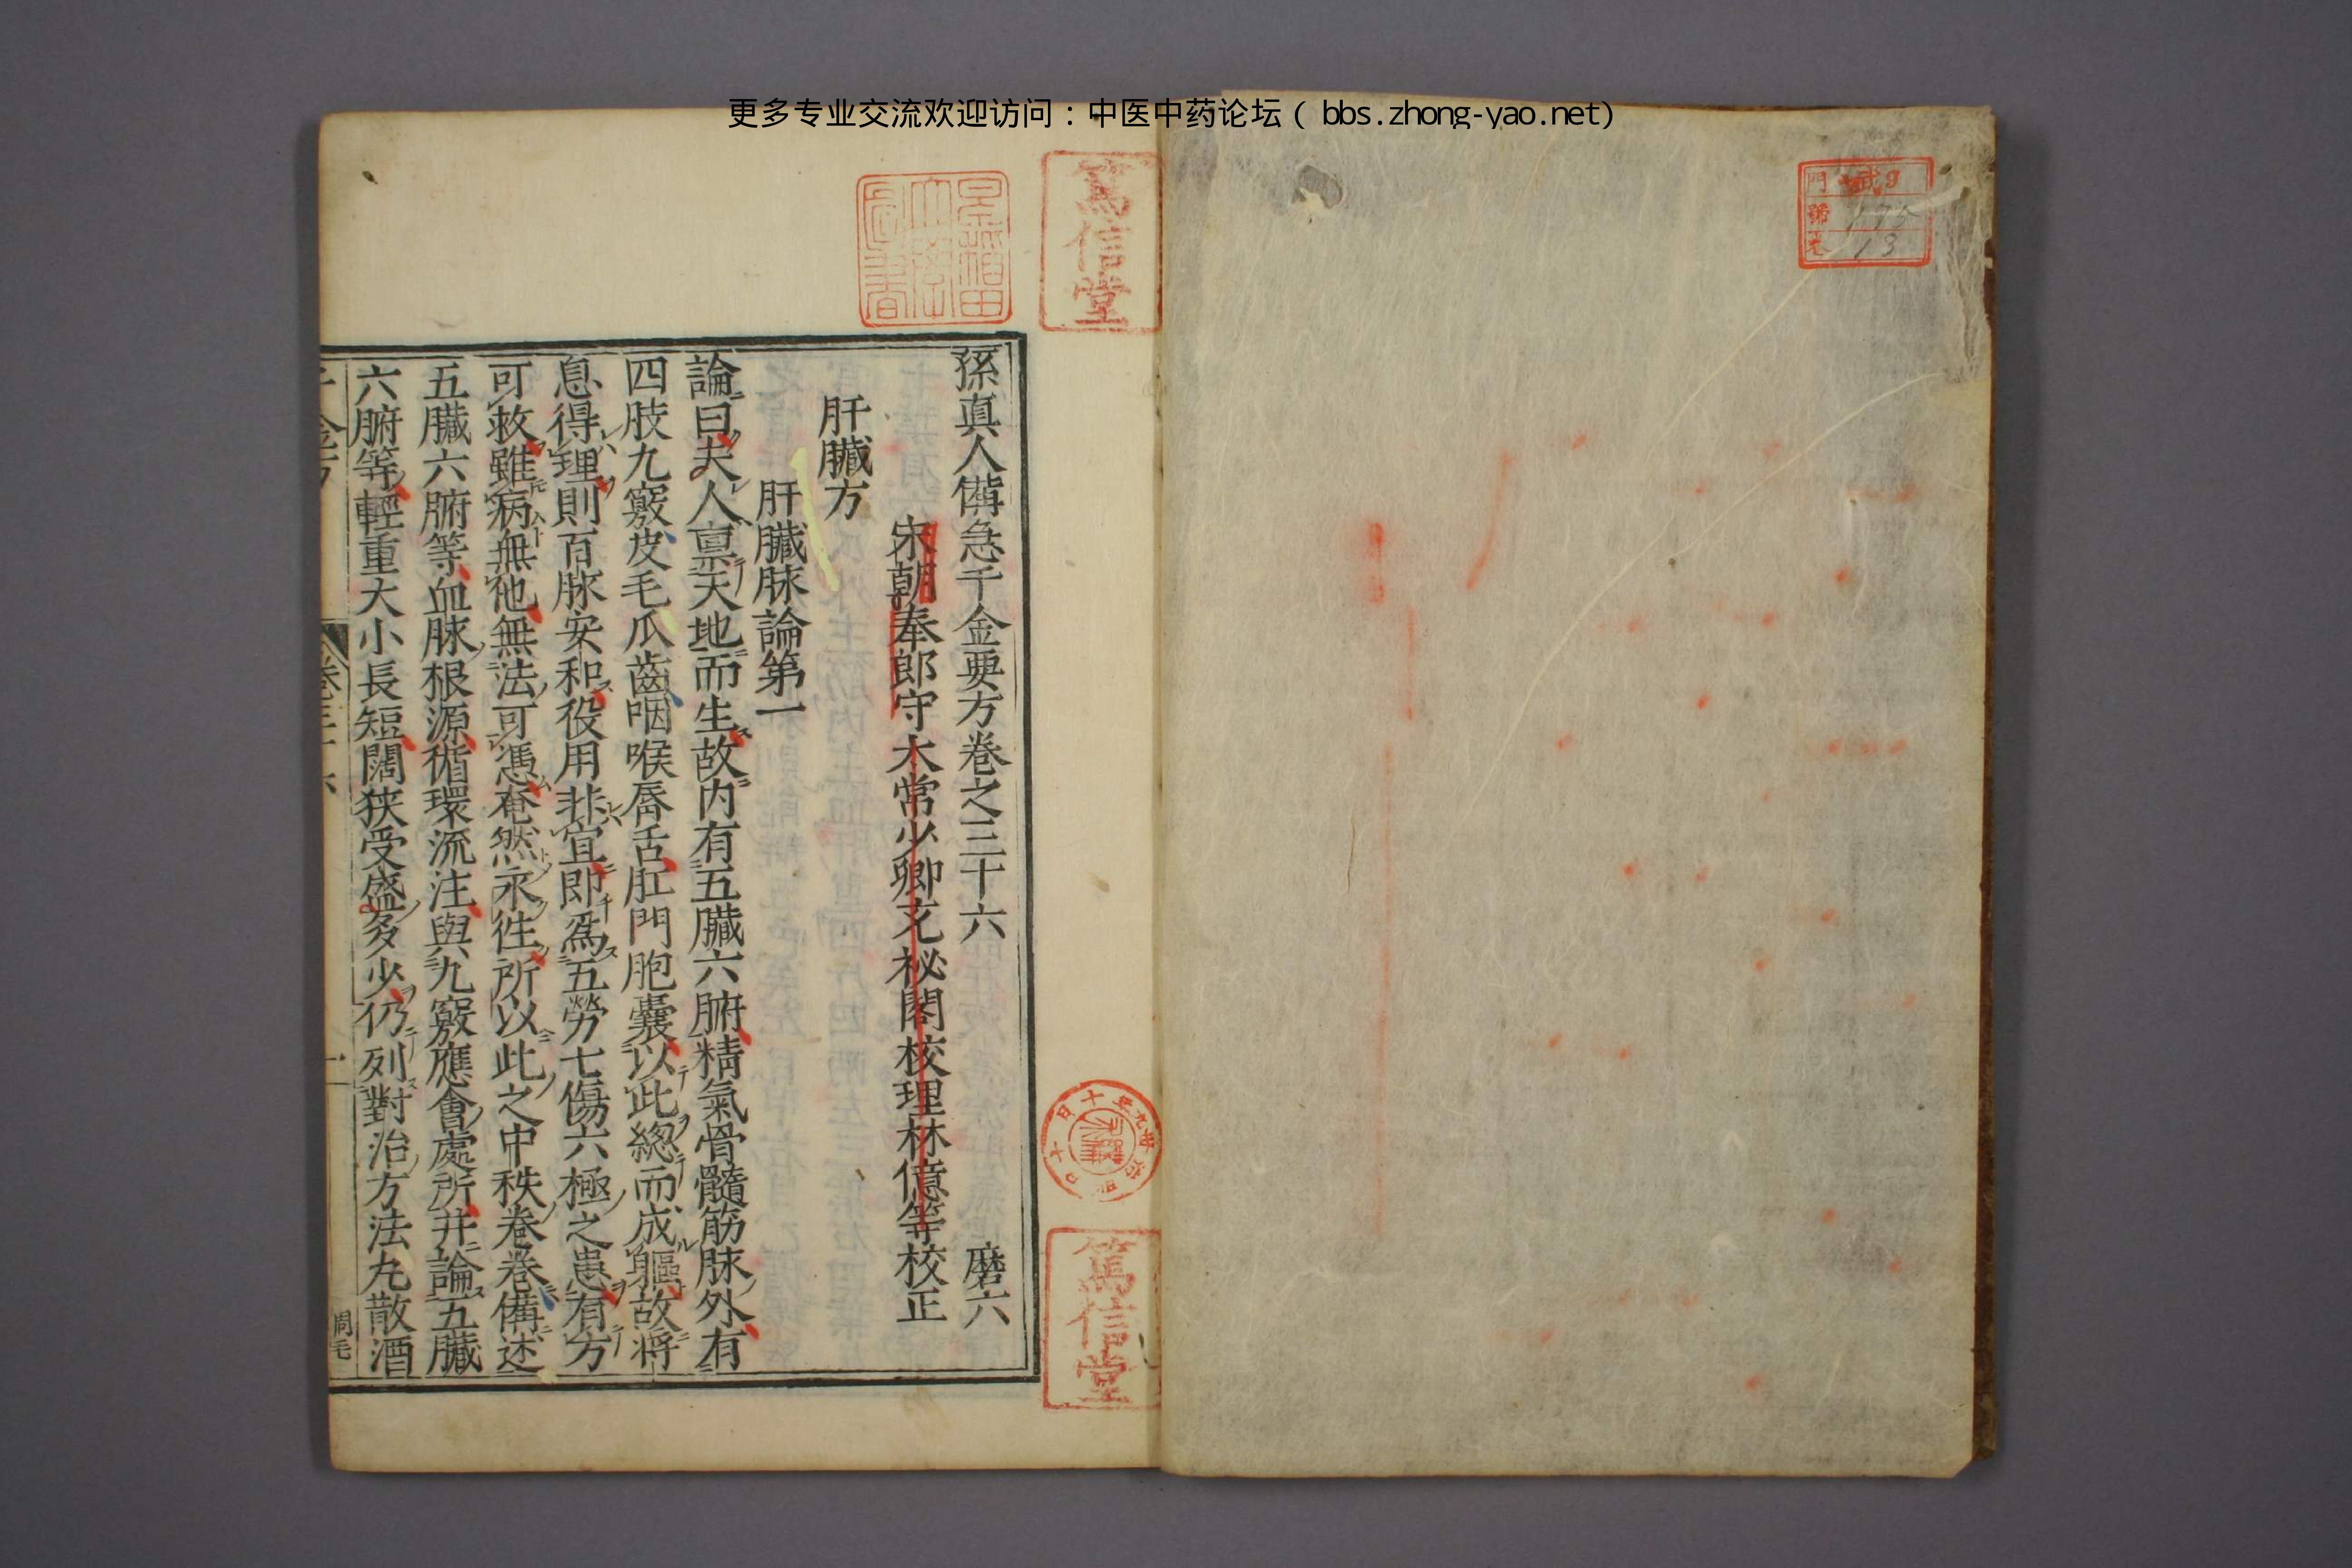 更多专业交流欢迎访问：中医中药论坛（bbs.zhong-yao.net）
門
號 475
13
篤信堂
孫真人備急千金要方卷之三十六　磨六
宋朝奉郎守太常少卿充秘閣校理林億等校正
肝臟方
肝臟脉論第一
論曰夫人禀天地而生故内有五臟六腑精氣骨髓筋脉外有
四肢九竅皮毛爪齒咽喉唇舌肛門胞囊以此總而成軀故將
息得理則百脉安和役用非宜即爲五勞七傷六極之患有方
可救雖病無他無法可憑奄然永徃所以此之中秩卷卷備述
五臟六腑等血脉根源循環流注與九竅應會處所并論五臟
六腑等輕重大小長短闊狹受盛多少仍列對治方法丸散酒
篤信堂